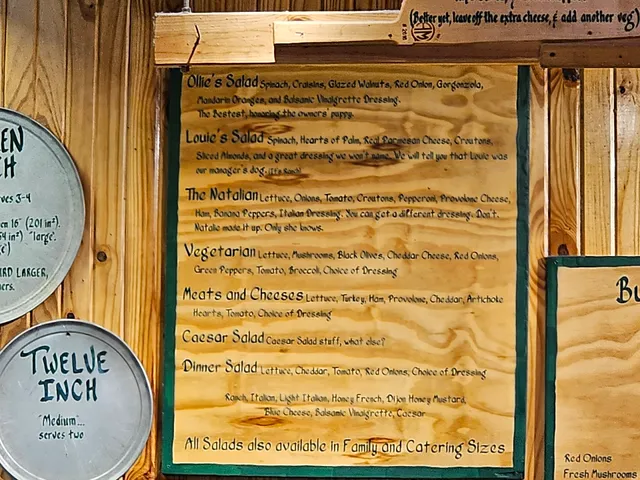 (Better yet, leave off the extra cheese, & add another veg)
Ollie's Salad Spinach, Craisins, Glazed Walnuts, Red Onion, Gorgonzola,
Mandarin Oranges, and Balsamic Vinaigrette Dressing.
The Bestest, honoring the owners' puppy.
Louie's Salad Spinach, Hearts of Palm, Real Parmesan Cheese, Croutons,
Sliced Almonds, and a great dressing we won't name. We will tell you that Louie was
our manager's dog. (It's Ranch)
The Natalian Lettuce, Onions, Tomato, Croutons, Pepperoni, Provolone Cheese,
Ham, Banana Peppers, Italian Dressing. You can get a different dressing. Don't.
Natalie made it up. Only she knows.
Vegetarian Lettuce, Mushrooms, Black Olives, Cheddar Cheese, Red Onions,
Green Peppers, Tomato, Broccoli, Choice of Dressing
Meats and Cheeses Lettuce, Turkey, Ham, Provolone, Cheddar, Artichoke
Hearts, Tomato, Choice of Dressing
Caesar Salad Caesar Salad stuff, what else?
Dinner Salad Lettuce, Cheddar, Tomato, Red Onions, Choice of Dressing
Ranch, Italian, Light Italian, Honey French, Dijon Honey Mustard,
Blue Cheese, Balsamic Vinaigrette, Caesar
All Salads also available in Family and Catering Sizes
EEN
CH
rves 3-4
en 16" (201 in².
54 in²) "large".
RD LARGER,
TWELVE
INCH
"Medium"...
serves two
Bu
Red Onions
Fresh Mushrooms